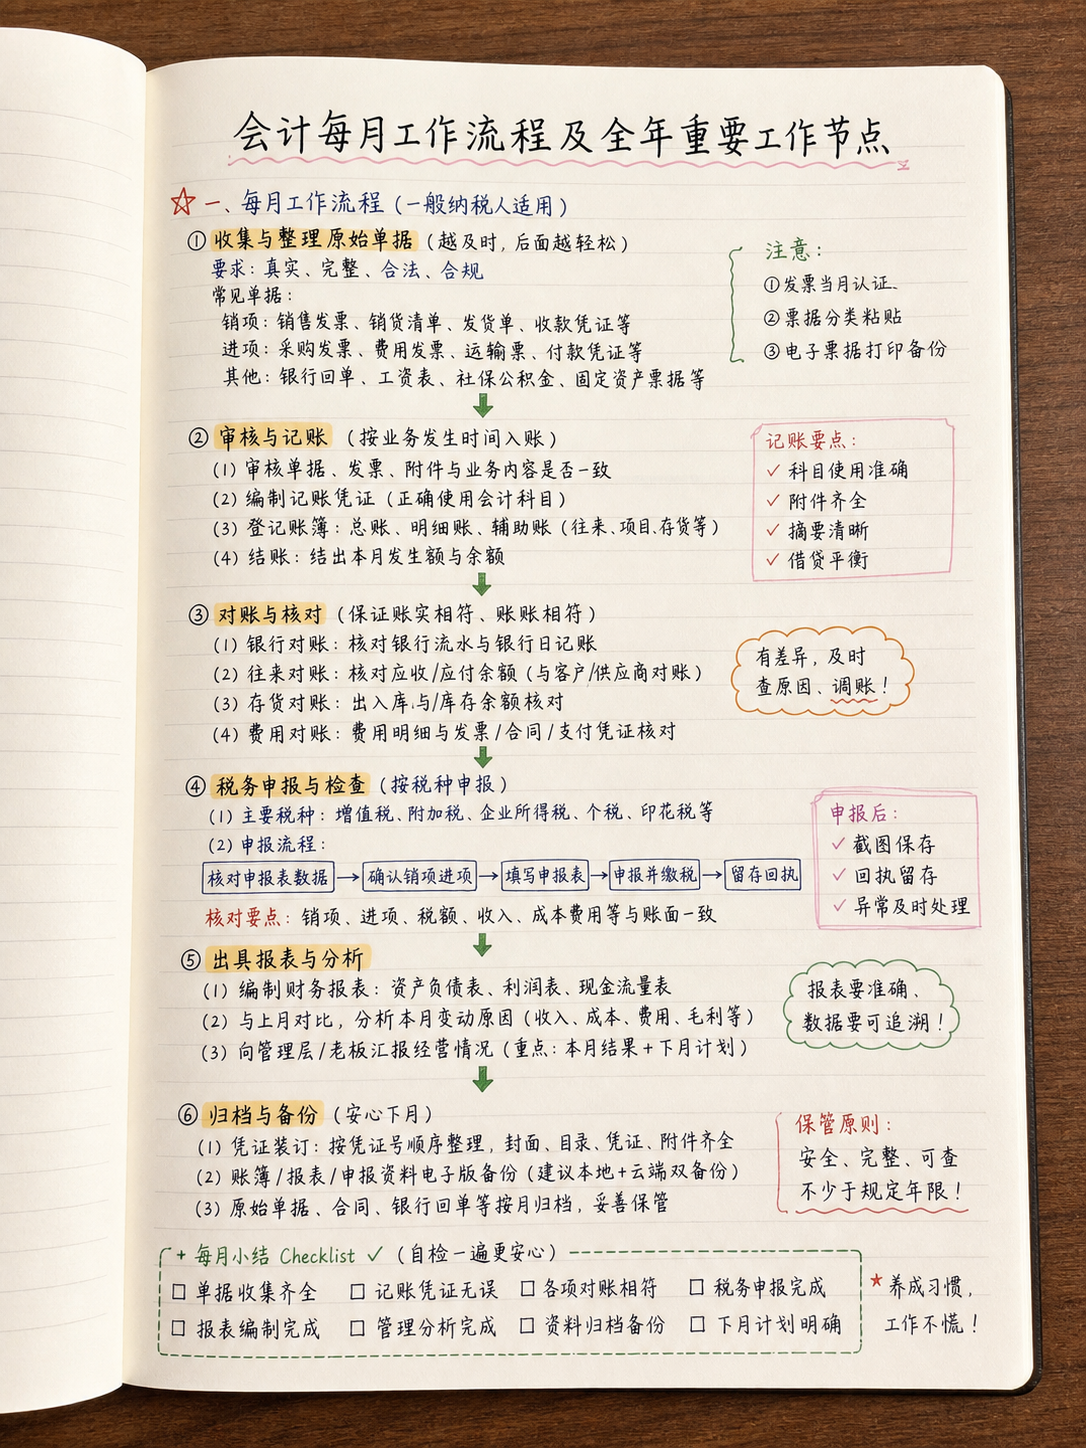 会计每月工作流程及全年重要工作节点
☆ 一、每月工作流程（一般纳税人适用）
① 收集与整理原始单据（越及时，后面越轻松）
要求：真实、完整、合法、合规
常见单据：
销项：销售发票、销货清单、发货单、收款凭证等
进项：采购发票、费用发票、运输票、付款凭证等
其他：银行回单、工资表、社保公积金、固定资产票据等
注意：
①发票当月认证、
②票据分类粘贴
③电子票据打印备份
② 审核与记账（按业务发生时间入账）
(1) 审核单据、发票、附件与业务内容是否一致
(2) 编制记账凭证（正确使用会计科目）
(3) 登记账簿：总账、明细账、辅助账（往来、项目、存货等）
(4) 结账：结出本月发生额与余额
记账要点：
✓ 科目使用准确
✓ 附件齐全
✓ 摘要清晰
✓ 借贷平衡
③ 对账与核对（保证账实相符、账账相符）
(1) 银行对账：核对银行流水与银行日记账
(2) 往来对账：核对应收/应付余额（与客户/供应商对账）
(3) 存货对账：出入库与/库存余额核对
(4) 费用对账：费用明细与发票/合同/支付凭证核对
有差异，及时
查原因、调账！
④ 税务申报与检查（按税种申报）
(1) 主要税种：增值税、附加税、企业所得税、个税、印花税等
(2) 申报流程：
核对申报表数据→确认销项进项→填写申报表→申报并缴税→留存回执
核对要点：销项、进项、税额、收入、成本费用等与账面一致
申报后：
✓ 截图保存
✓ 回执留存
✓ 异常及时处理
⑤ 出具报表与分析
(1) 编制财务报表：资产负债表、利润表、现金流量表
(2) 与上月对比，分析本月变动原因（收入、成本、费用、毛利等）
(3) 向管理层/老板汇报经营情况（重点：本月结果+下月计划）
报表要准确、
数据要可追溯！
⑥ 归档与备份（安心下月）
(1) 凭证装订：按凭证号顺序整理，封面、目录、凭证、附件齐全
(2) 账簿/报表/申报资料电子版备份（建议本地+云端双备份）
(3) 原始单据、合同、银行回单等按月归档，妥善保管
保管原则：
安全、完整、可查
不少于规定年限！
+ 每月小结 Checklist ✓（自检一遍更安心）
□ 单据收集齐全 □ 记账凭证无误 □ 各项对账相符 □ 税务申报完成
□ 报表编制完成 □ 管理分析完成 □ 资料归档备份 □ 下月计划明确
★ 养成习惯，
工作不慌！